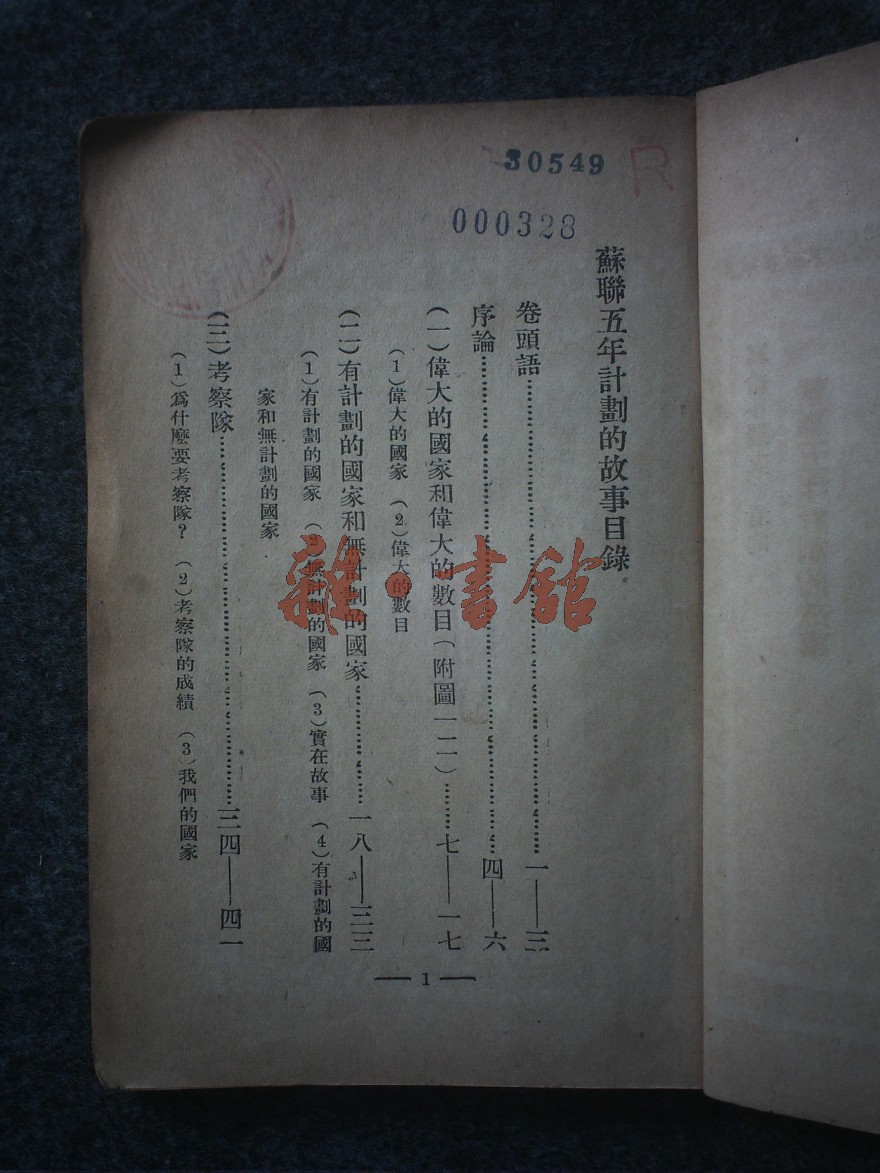 30549
R
000328
蘇聯五年計劃的故事目錄
卷頭語……一——三
序論……四——六
(一)偉大的國家和偉大的數目(附圖一二)……七——一七
(1)偉大的國家 (2)偉大的數目
(二)有計劃的國家和無計劃的國家……一八——三三
(1)有計劃的國家 (2)無計劃的國家 (3)實在故事 (4)有計劃的國
家和無計劃的國家
(三)考察隊……三四——四一
(1)爲什麽要考察隊? (2)考察隊的成績 (3)我們的國家
— 1 —
雜·書館